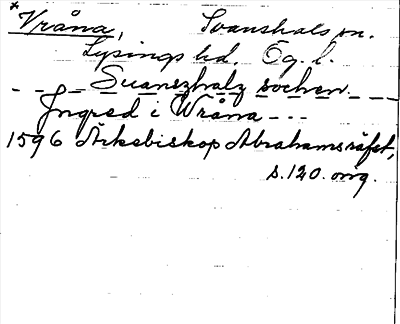 *Vråna, Svanshals sn.
Lysings hd. Ög. l.
- - - Suanszhalz sochen - - -
Jngred i Wråna - - -
1596 Ärkebiskop Abrahams räfst,
s. 120. orig.